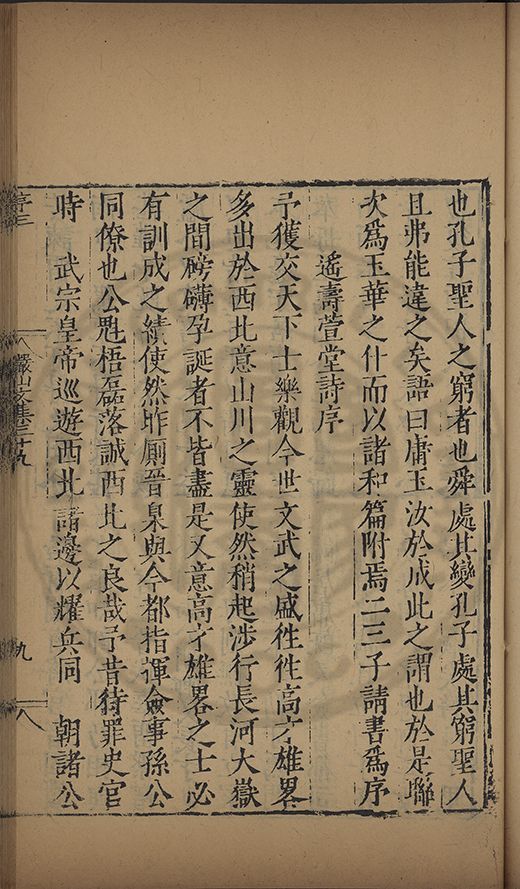 也孔子聖人之窮者也舜處其變孔子處其窮聖人
且弗能違之矣語曰庸玉汝於成此之謂也於是聯
次爲玉華之什而以諸和篇附焉二三子請書爲序
遙壽萱堂詩序
予獲交天下士樂觀今世文武之盛徃徃高才雄畧
多出於西北意山川之靈使然稍起涉行長河大嶽
之間磅礴孕誕者不皆盡是又意高才雄畧之士必
有訓成之績使然昨廁晉臬與今都指揮僉事孫公
同僚也公魁梧磊落誠西北之良哉予昔待罪史官
時　武宗皇帝巡遊西北諸邊以耀兵同　朝諸公
序三　儼山文集卷三十九　九